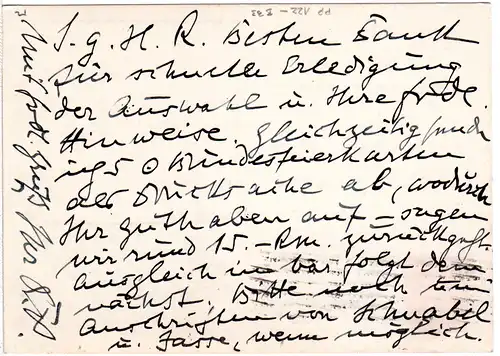 S. g. H. R. Besten Dank
für schnelle Erledigung
der Auswahl u. Ihre frdl.
Hinweise. Gleichzeitig
ich 50 Bundesfeierkarten
als Drucksache ab, wodurch
Ihr Guthaben auf – sagen
wir rund 15.– Rm. zurückgeht.
Ausgleich in bar folgt dem
nächst. Bitte noch um
Anschriften von Schnabel
u. Jasse, wenn möglich.
Mit frdl. Gruß Ihr
PP 122 - E 33